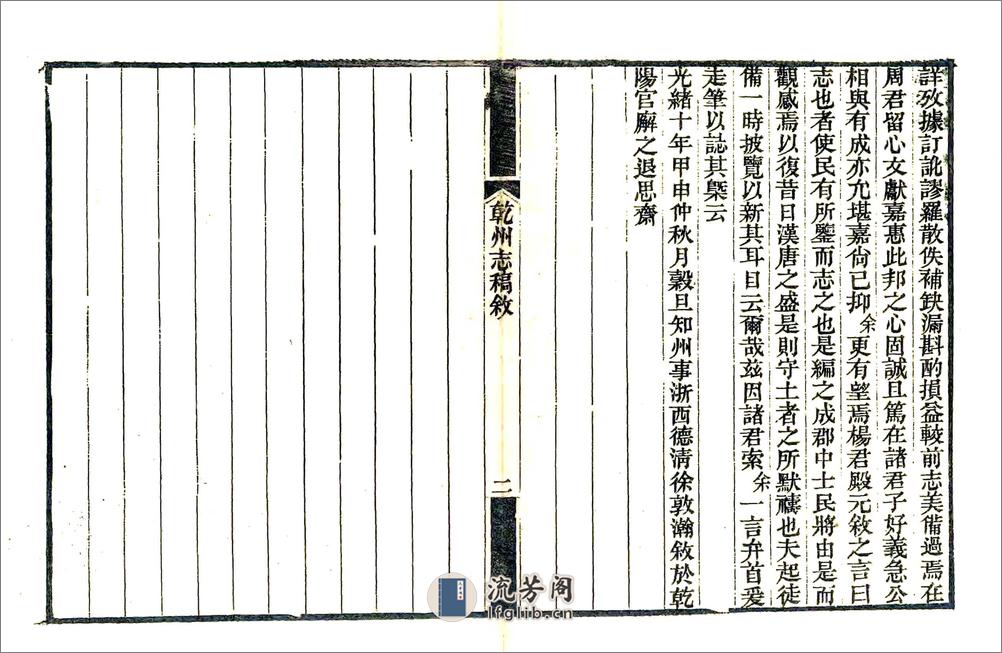 詳攷據訂訛謬羅散佚補缺漏斟酌損益較前志美備過焉在
周君留心文獻嘉惠此邦之心固誠且篤在諸君子好義急公
相與有成亦允堪嘉尙已抑余更有望焉楊君殿元敘之言曰
志也者使民有所鑒而志之也是編之成郡中士民將由是而
觀感焉以復昔日漢唐之盛是則守土者之所默禱也夫起徒
備一時披覽以新其耳目云爾哉兹因諸君索余一言弁首爰
走筆以誌其槩云
光緒十年甲申仲秋月穀旦知州事浙西德淸徐敦瀚敘於乾
陽官廨之退思齋
乾州志稿敘
二
流芳阁
lfglib.cn